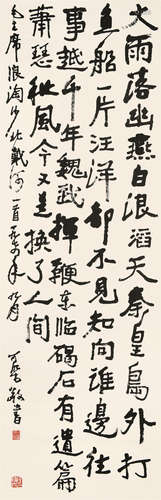 大雨落幽燕白浪滔天秦皇島外打
魚船一片汪洋都不見知向誰邊往
事越千年魏武揮鞭東臨碣石有遺篇
蕭瑟秋風今又是換了人間
毛主席浪淘沙北戴河一首
書